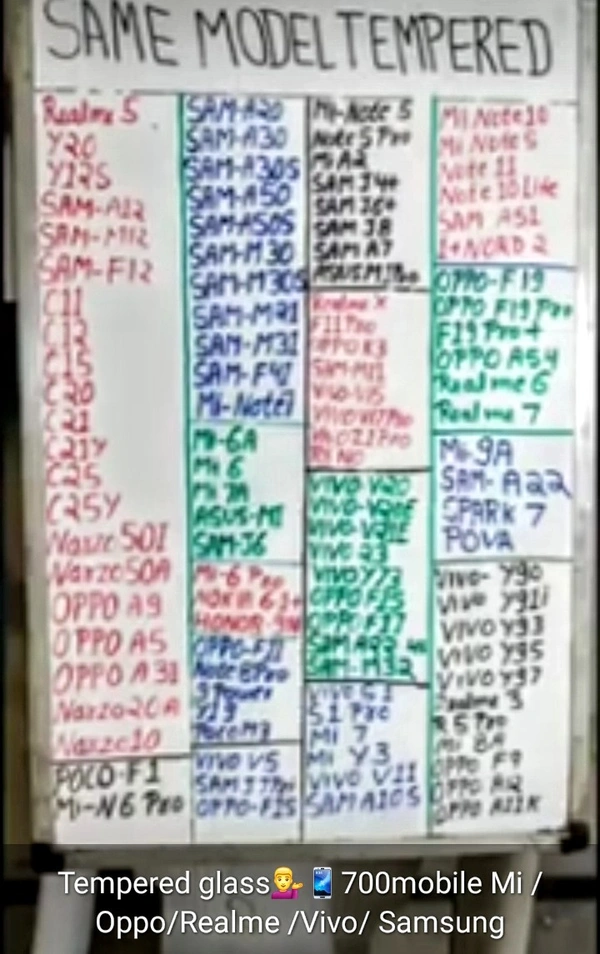 SAME MODEL TEMPERED
Realme 5
Y20
Y12S
SAM-A12
SAM-M12
SAM-F12
C11
C12
C15
C20
C21
C21Y
C25
C25Y
Narzo 50I
Narzo 50A
OPPO A9
OPPO A5
OPPO A31
Narzo 20A
Narzo 10
POCO-F1
Mi-N6 Pro
SAM-A20
SAM-A30
SAM-A30S
SAM-A50
SAM-A50S
SAM-M30
SAM-M30S
SAM-M21
SAM-M31
SAM-F41
Mi-Note7
Mi-6A
Mi 6
Mi 7A
ASUS-M1
SAM-J6
Mi-6 Pro
NOKIA 6.1+
HONOR
OPPO-F11
Note 8 Pro
Y19
Poco M3
VIVO V5
SAM J7 Pro
OPPO-F1S
Mi-Note 5
Note 5 Pro
Mi A2
SAM J4+
SAM J6+
SAM J8
SAM A7
Realme X
F11 Pro
OPPO K3
SAM-M11
Vivo-V15
VIVO V17 Pro
VIVO V20
VIVO-V20E
VIVO-V21E
VIVO 23
VIVO Y73
OPPO F15
OPPO F17
SAM A22
SAM-M32
VIVO S1
S1 Pro
Mi 7
Mi Y3
VIVO V11
SAM A10S
MI Note 10
Mi Note 5
Note 11
Note 10 Lite
SAM A51
1+NORD 2
OPPO-F19
OPPO F19 Pro
F19 Pro+
OPPO A54
Realme 6
Realme 7
Mi 9A
SAM- A22
SPARK 7
POVA
VIVO- Y90
VIVO Y91i
VIVO Y93
VIVO Y95
VIVO Y97
Realme 3
R 5 Pro
Mi 8A
OPPO F9
OPPO A12
OPPO A11K
Tempered glass💁‍♂️📱700mobile Mi /
Oppo/Realme /Vivo/ Samsung